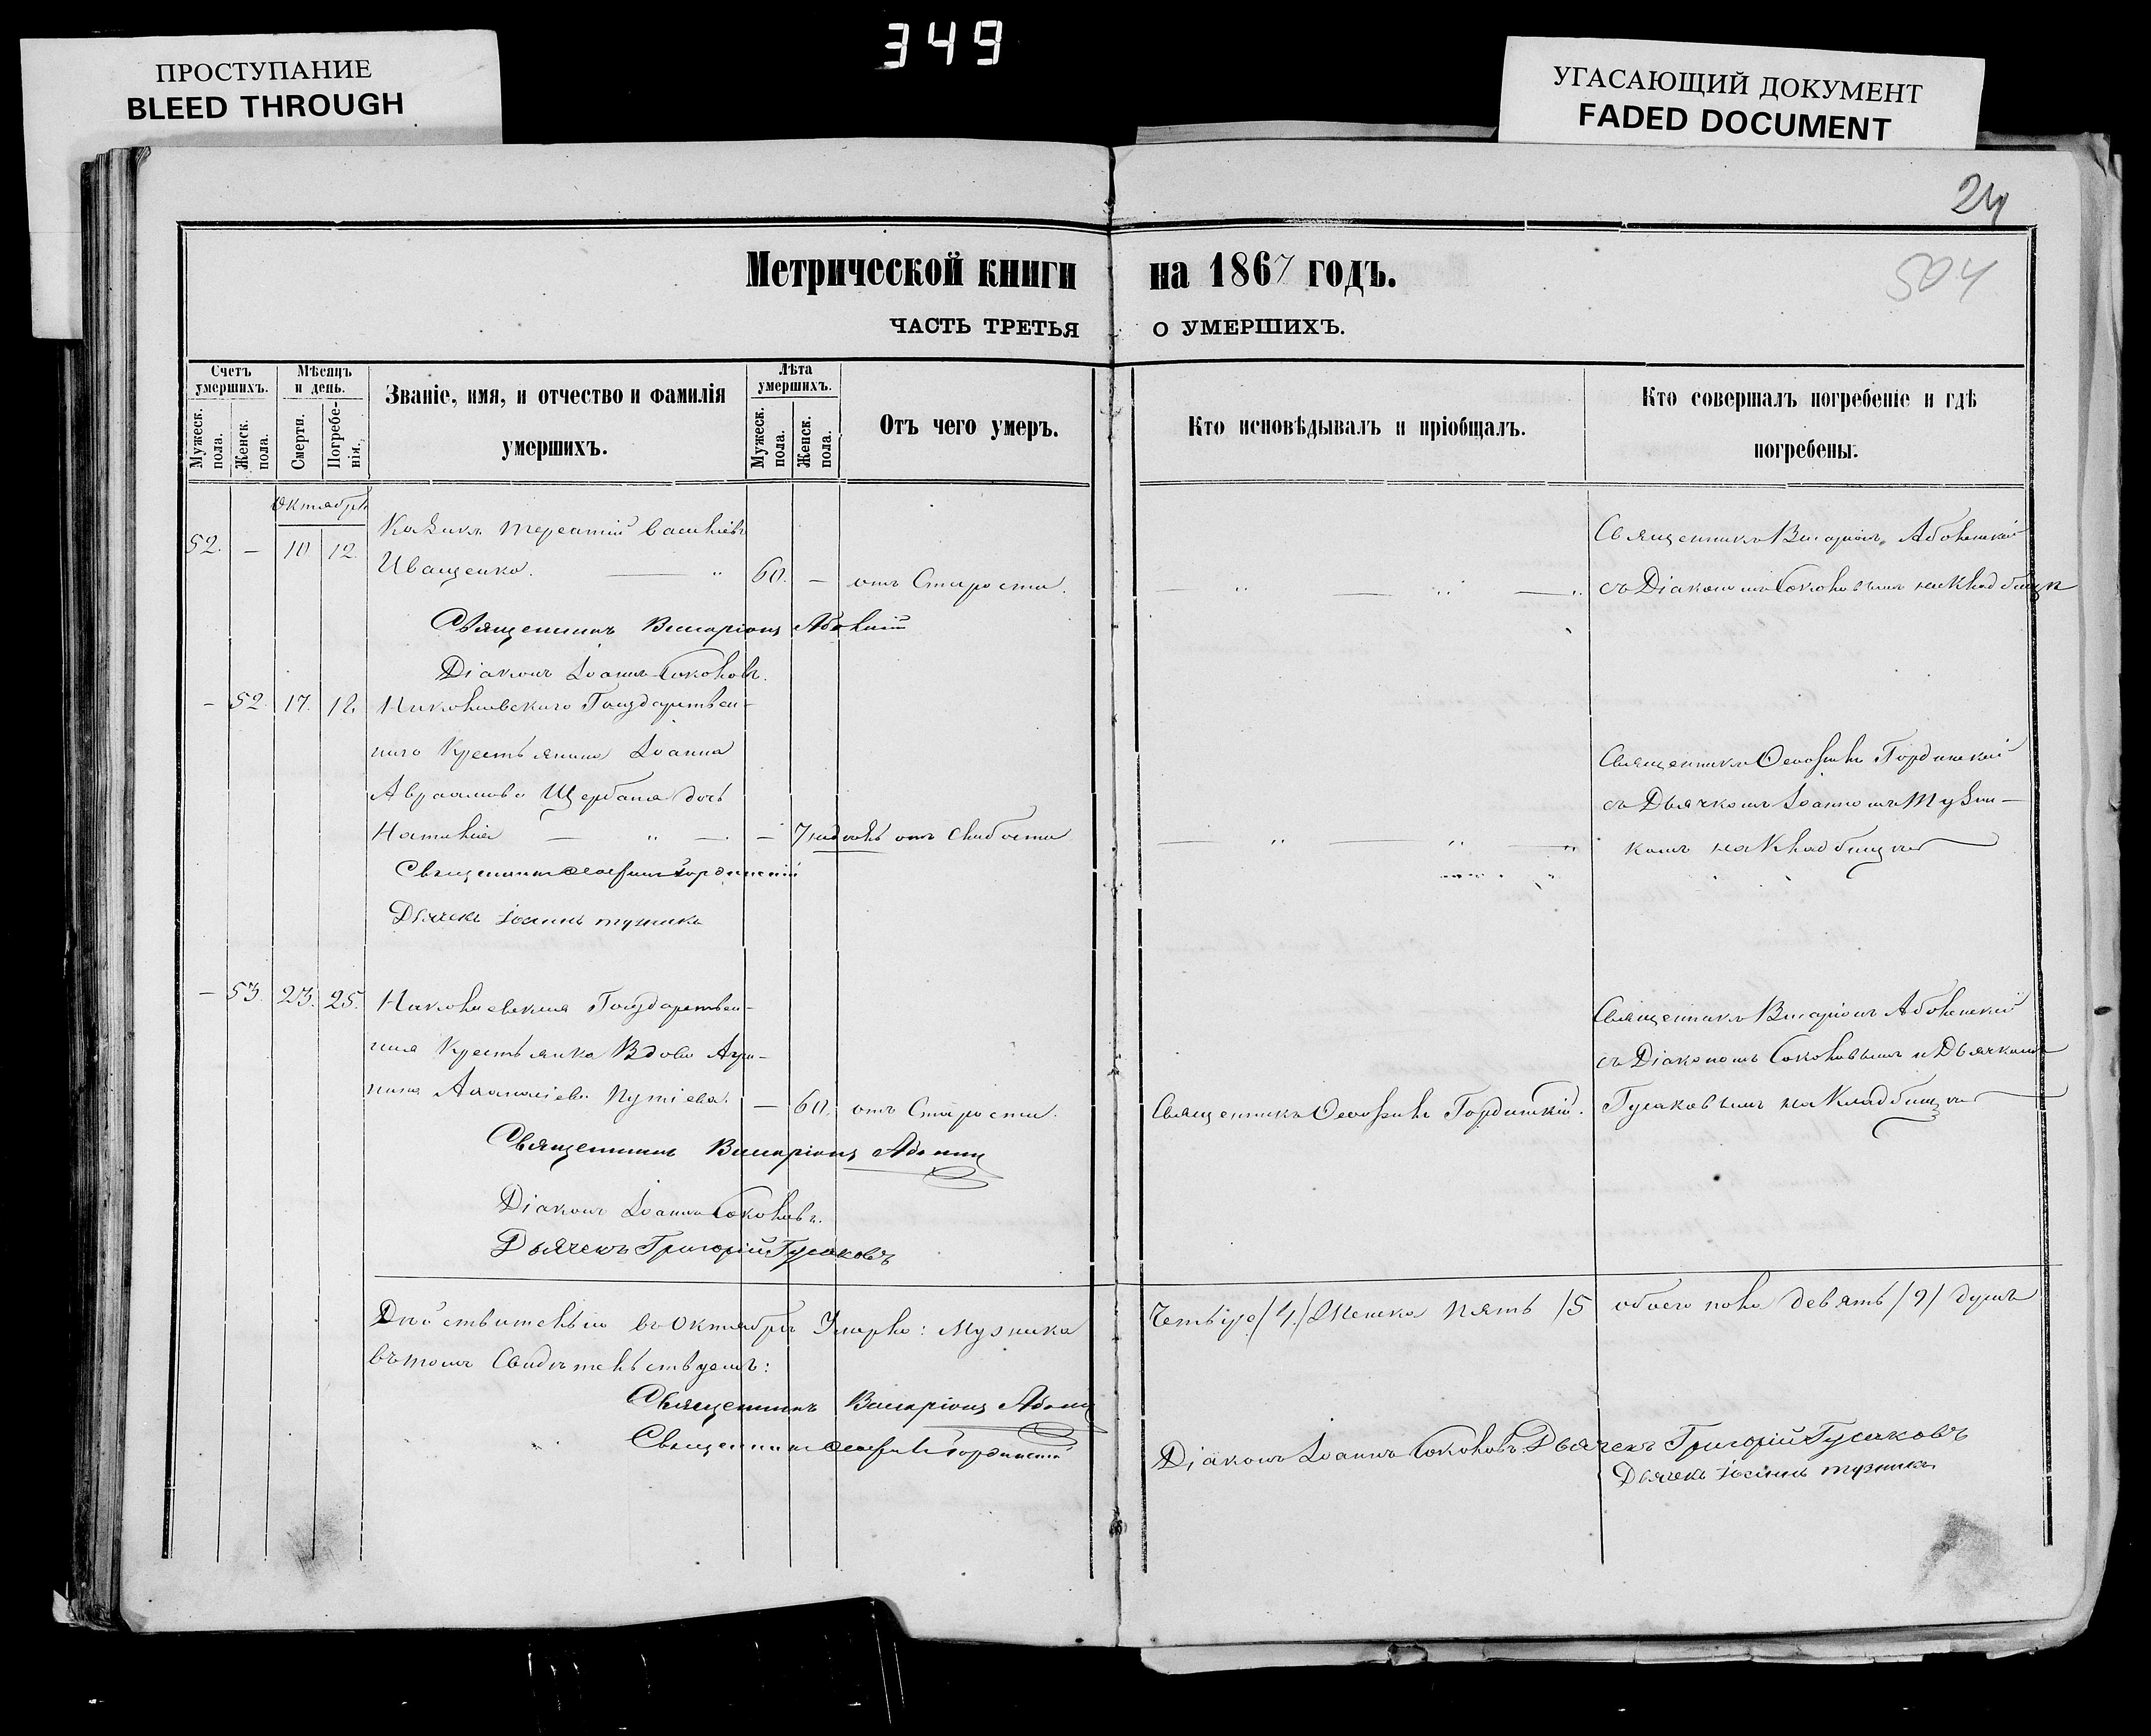 349
ПРОСТУПАНИЕ
BLEED THROUGH
УГАСАЮЩИЙ ДОКУМЕНТ
FADED DOCUMENT
24
504
Метрической книги на 1867 годъ.
ЧАСТЬ ТРЕТЬЯ О УМЕРШИХЪ.
Счетъ умершихъ.
Мужеск. пола.
Женск. пола.
Мѣсяцъ и день.
Смерти.
Погребе-нія.
Званіе, имя, и отчество и фамилія
умершихъ.
Лѣта умершихъ.
Мужеск. пола.
Женск. пола.
Отъ чего умеръ.
Кто исповѣдывалъ и пріобщалъ.
Кто совершалъ погребеніе и гдѣ
погребены.
Октябрь
52. – 10 12.
Иващенко. 60. – отъ Старости.
Священникъ Висаріонъ
съ Діакономъ Соколовымъ на Кладбищѣ
Священникъ Виссаріонъ
Діаконъ Іоаннъ Соколовъ.
– 52. 17. 18. Николаевскаго Государствен-
наго Крестьянина Іоанна
Авраамова Щербана дочь
Наталія – 7 недѣль отъ слабости
Священникъ Ѳеофилъ Гординскій
съ Дьячкомъ Іоанномъ Музы-
комъ на Кладбищѣ
Священникъ Ѳеофилъ Гординскій
Дьячекъ Іоаннъ
– 53. 23. 25. Николаевская Государствен-
ная Крестьянка Вдова Агри-
пина – 60. отъ Старости.
Священникъ Ѳеофилъ Гординскій.
Священникъ Висаріонъ
съ Діакономъ Соколовымъ и Дьячкомъ
Гусаковымъ на Кладбищѣ
Священникъ Виссаріонъ
Діаконъ Іоаннъ Соколовъ.
Дьячекъ Григорій Гусаковъ
въ Октябрѣ Умерло: Мужеска Четыре /4/ Женска пять /5 обоего пола девять /9/ душъ
въ томъ Свидѣтельствуемъ:
Священникъ Виссаріонъ
Священникъ Ѳеофилъ Гординскій
Діаконъ Іоаннъ Соколовъ. Дьячекъ Григорій Гусаковъ
Дьячекъ Іоаннъ